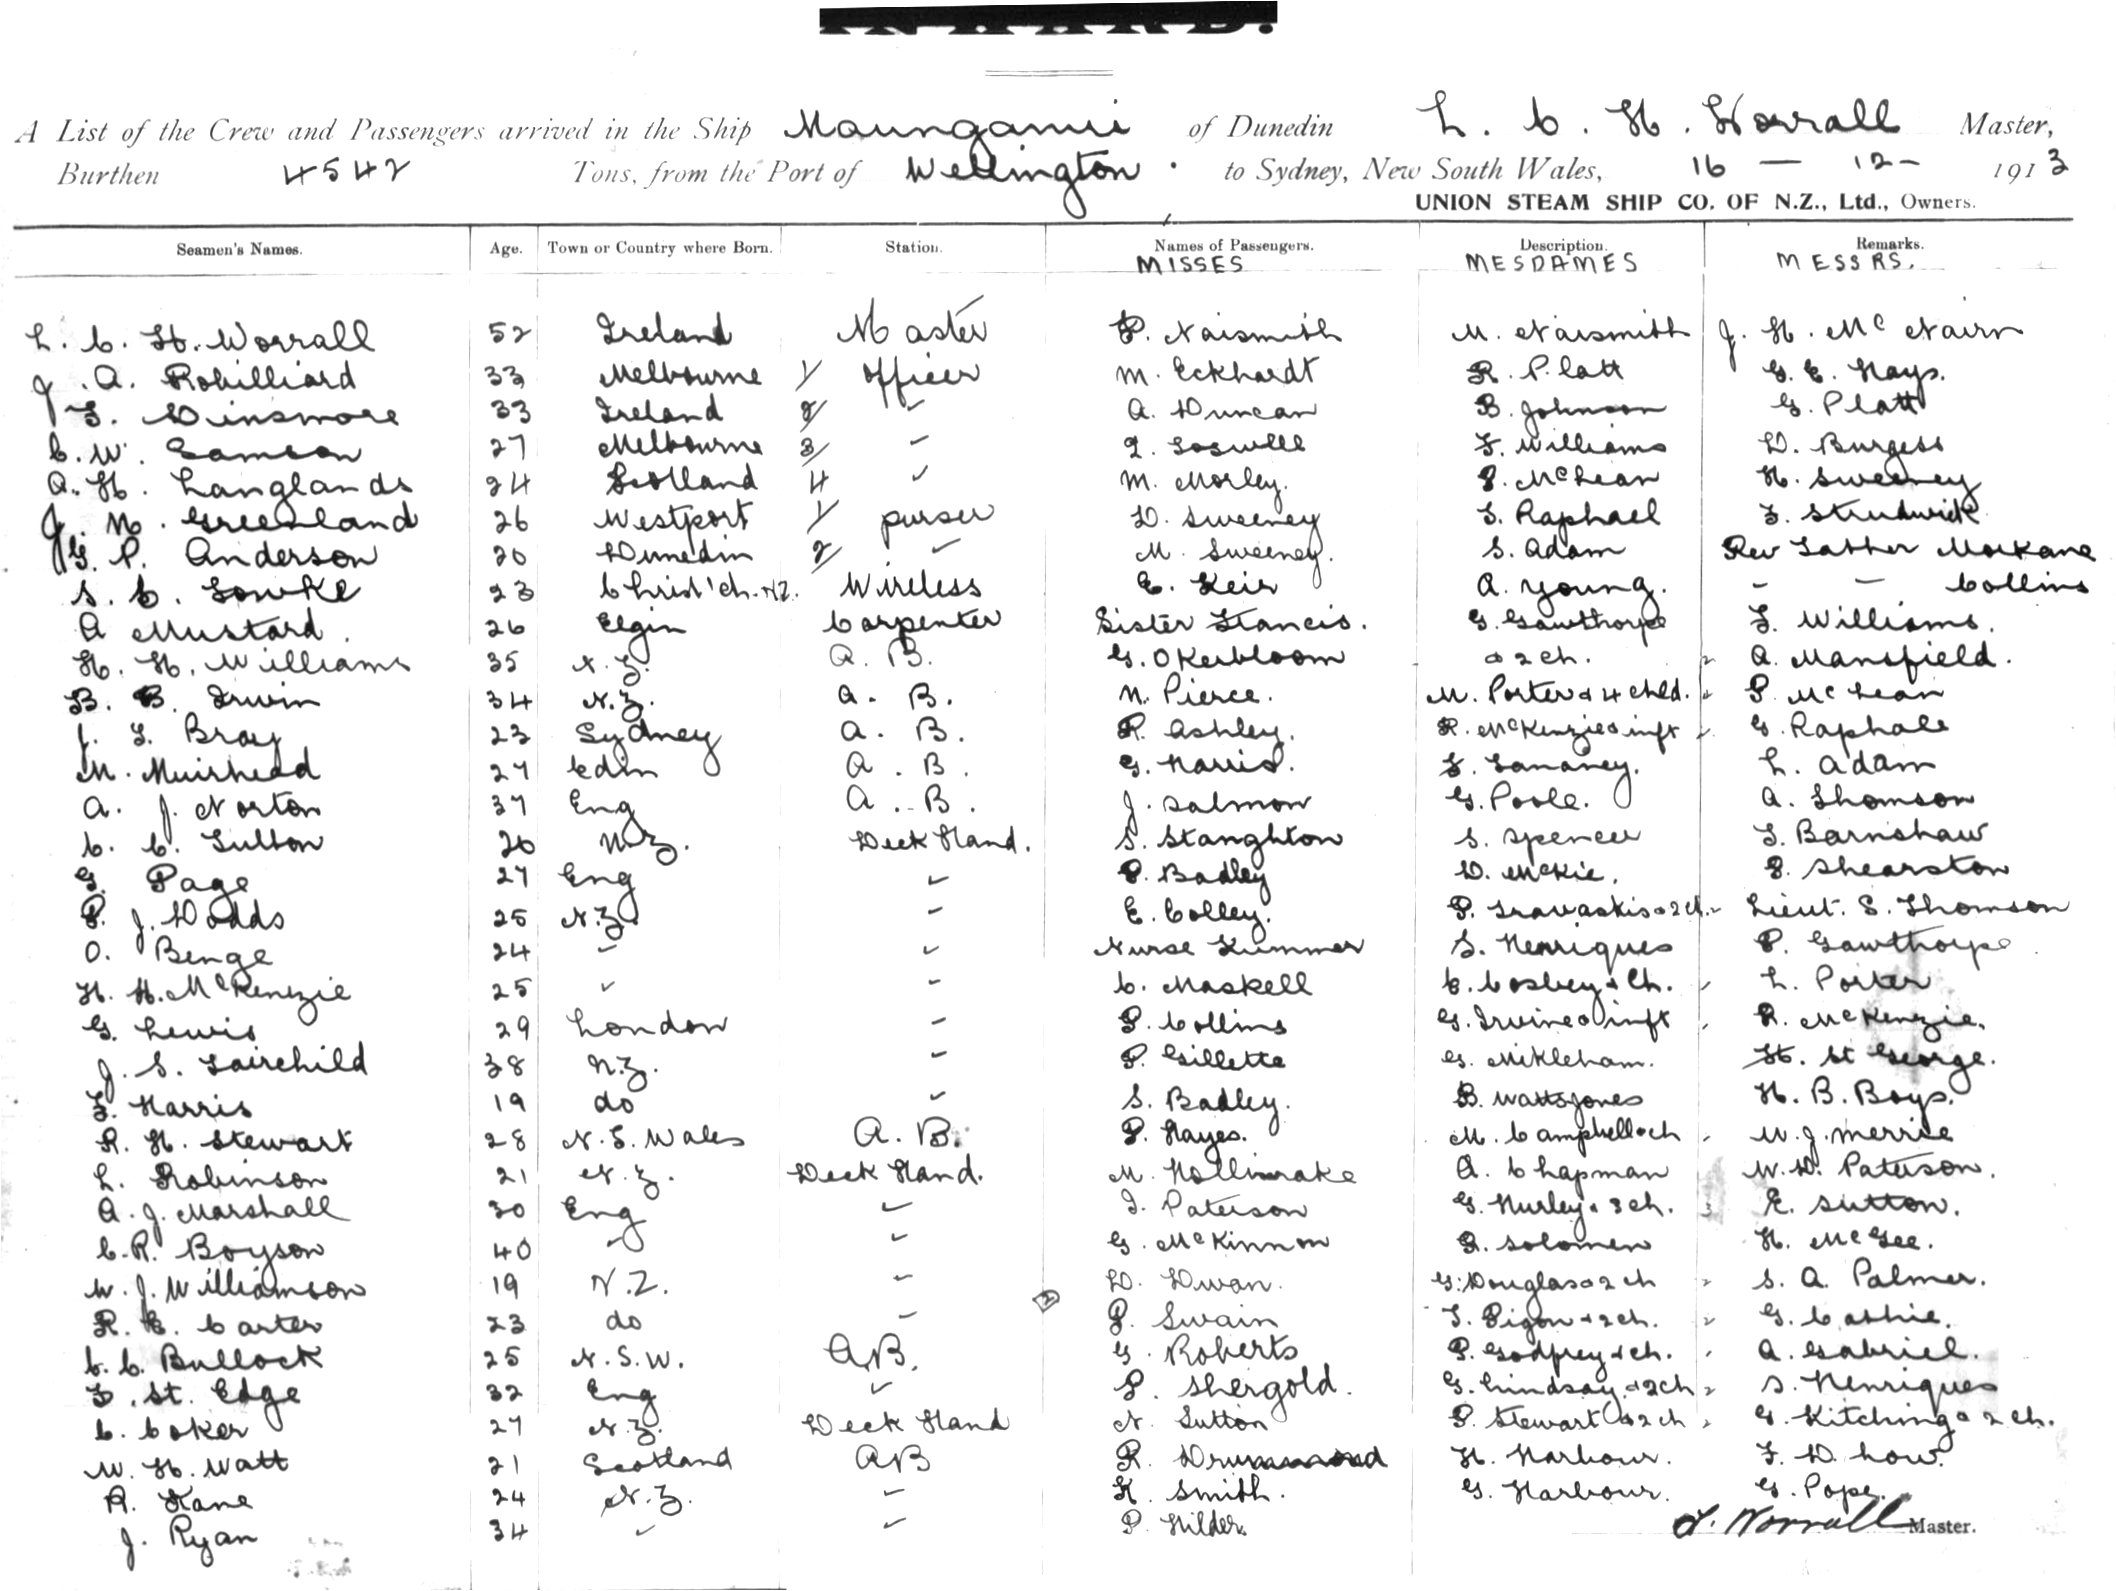 A List of the Crew and Passengers arrived in the Ship Maunganui of Dunedin L. C. H. Worrall Master,
Burthen 4542 Tons, from the Port of Wellington to Sydney, New South Wales, 16 — 12 - 1913
UNION STEAM SHIP CO. OF N.Z., Ltd., Owners.
Seamen's Names. Age. Town or Country where Born. Station. Names of Passengers. Description. Remarks.
MISSES MESDAMES MESSRS.
L. C. H. Worrall 52 Ireland Master P. Naismith M. Naismith J. H. McNairn
J. A. Robilliard 33 Melbourne 1/ officer M. Eckhardt R. Platt G. E. Hays.
F. Dinsmore 33 Ireland 2/ " A. Duncan B. Johnson G. Platt
C. W. Samson 27 Melbourne 3/ " F. Williams D. Burgess
A. H. Langlands 24 Scotland 4 " M. Morley. P. McLean H. Sweeney
J. N. Greenland 26 Westport 1/ purser D. Sweeney S. Raphael F. Strudwick
G. P. Anderson 20 Dunedin 2/ " M. Sweeney. S. Adam Rev Father Markane
S. C. Fowke 23 Christ'ch. NZ. Wireless E. Keir A. Young. - - Collins
A Mustard. 26 Elgin Carpenter Sister Francis. G. Gawthorpe F. Williams.
H. H. Williams 35 N.Z. A. B. G. Okerbloom & 2 ch. 2 A. Mansfield.
B. B. Irwin 34 N.Z. A. B. N. Pierce. M. Porter & 4 chld. P McLean
J. F. Bray 23 Sydney A. B. R. Ashley. R. McKenzie & inft G. Raphale
M. Muirhead 27 Edin A. B. G. Harris. F. Fananey. L. Adam
A. J. Norton 37 Eng A. B. J. Salmon G. Poole. A. Thomson
C. C. Sutton 20 N.Z. Deck Hand. S. Stanghton S. Spencer T. Barnshaw
G. Page 27 Eng " P. Badley D. McKie. P. Shearston
P. J. Dodds 25 N.Z. " E. Colley. P. Travaskis & 2 ch. Lieut. S. Thomson
O. Benge 24 " " Nurse Kummer S. Henriques P. Gawthorpe
H. H. McKenzie 25 " " C. Maskell C. Cosbey & Ch. L. Porter
G. Lewis 29 London " P. Collins G. Irvine & inft R. McKenzie.
J. S. Fairchild 38 N.Z. " P. Gillette G. Mikleham. H. St George.
F. Harris 19 do " S. Badley. B. Watts Jones H. B. Boys.
R. H. Stewart 28 N.S. Wales A. B. P. Hayes. M. Campbell & ch W. J. Merrie
L. Robinson 21 N.Z. Deck Hand. M. Hollinrake A. Chapman W. D. Paterson.
A. J. Marshall 30 Eng " I. Paterson G. Hurley & 3 ch. 3 E. Sutton.
C. R. Boyson 40 " " G. McKinnon R. Solomen H. McGee.
W. J. Williamson 19 N.Z. " D. Dwan. G. Douglas & 2 ch 2 S. A. Palmer.
R. E. Carter 23 do " 2 P. Swain T. Pigon & 2 ch. 2 G. Cathie.
C. C. Bullock 25 N.S.W. A.B. G. Roberts P. Godfrey & ch. A. Gabriel.
F. St. Edge 32 Eng " P. Shergold. G. Lindsay. & 2 ch 2 S. Henriques
C. Coker 27 N.Z. Deck Hand N. Sutton P. Stewart & 2 ch 2 G. Kitching & 2 ch.
W. H. Watt 21 Scotland AB R. Drummond H. Harbour. F. D. Low.
A. Kane 24 N.Z. " K. Smith. G. Harbour. G. Pope.
J. Ryan 34 " " P. Hilder. L. Worrall Master.